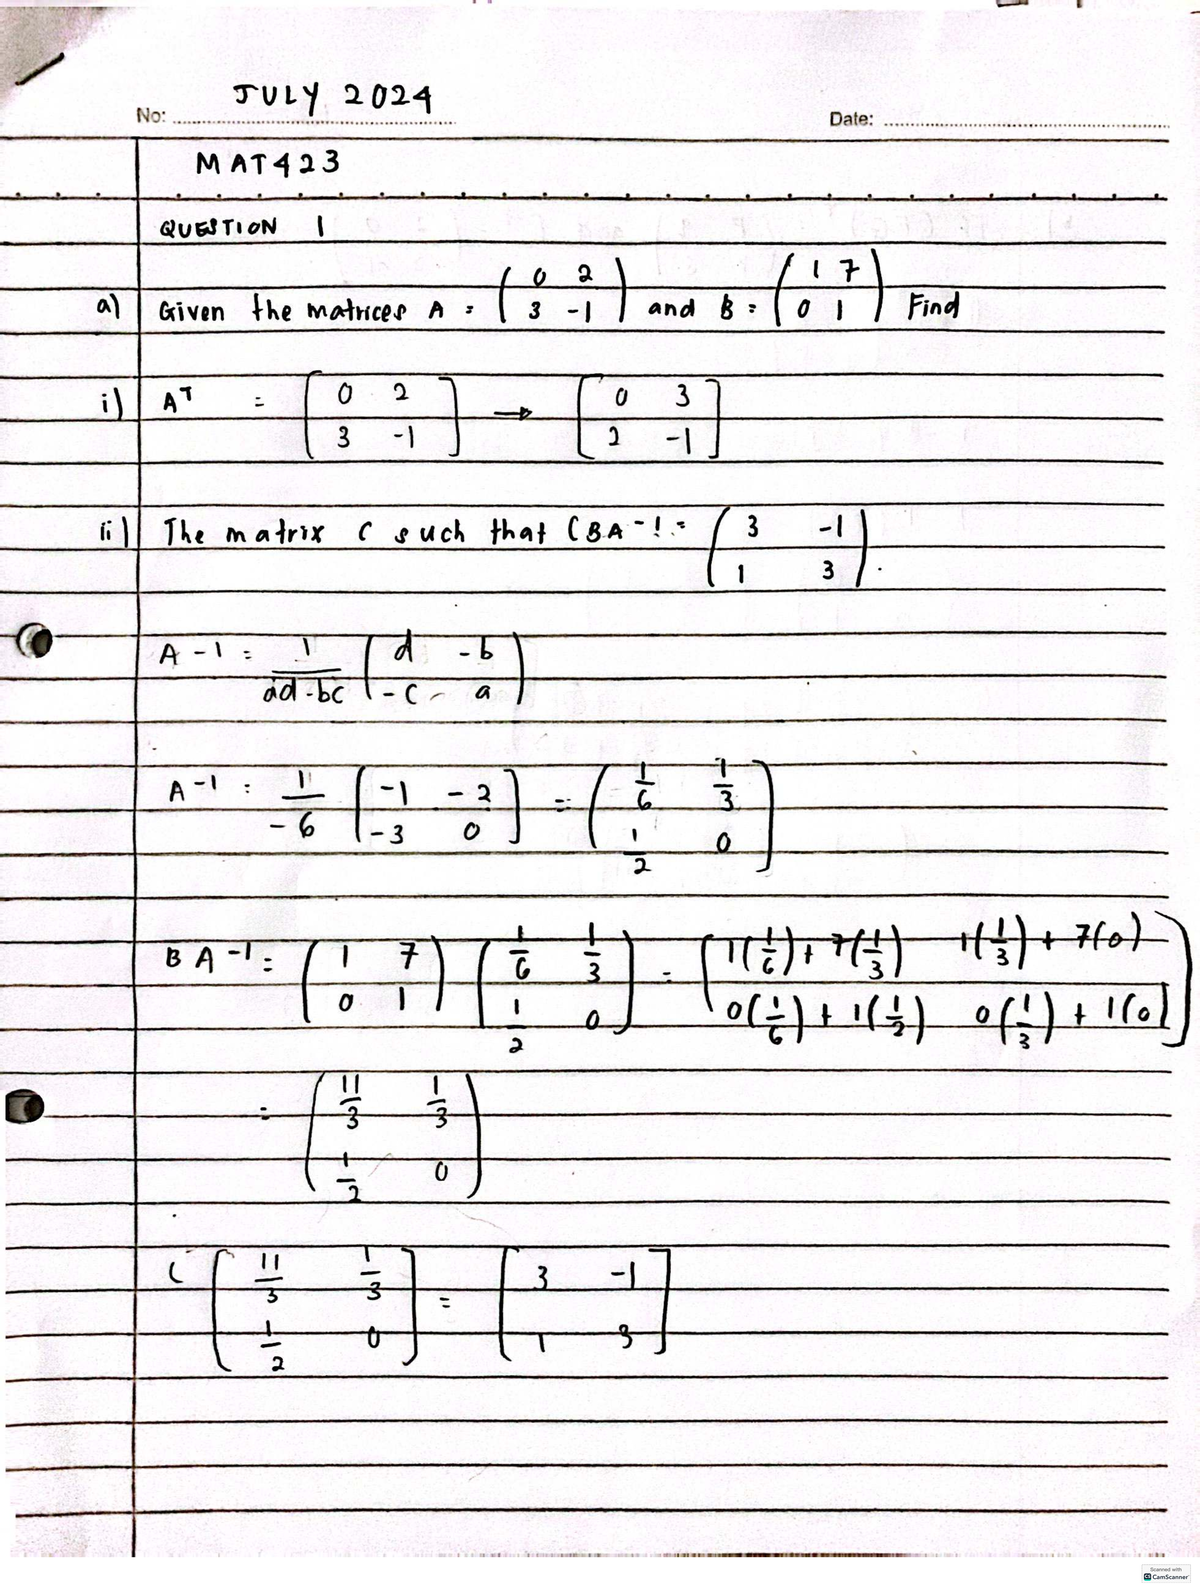 JULY 2024
No: Date:
MAT423
QUESTION 1
a) Given the matrices A = ( 0 2 ; 3 -1 ) and B = ( 1 7 ; 0 1 ) Find
i) A^T = [ 0 2 ; 3 -1 ] → [ 0 3 ; 2 -1 ]
ii) The matrix C such that CBA^-1 = ( 3 -1 ; 1 3 ).
A-1 = 1/(ad-bc) ( d -b ; -c a )
A^-1 = 1/-6 [ -1 -2 ; -3 0 ] = ( 1/6 1/3 ; 1/2 0 )
BA^-1 = ( 1 7 ; 0 1 ) ( 1/6 1/3 ; 1/2 0 ) = ( 1(1/6) + 7(1/3) 1(1/3) + 7(0) ; 0(1/6) + 1(1/2) 0(1/3) + 1(0) )
= ( 11/3 1/3 ; 1/2 0 )
C [ 11/3 1/3 ; 1/2 0 ] = [ 3 -1 ; 1 3 ]
Scanned with
CS CamScanner